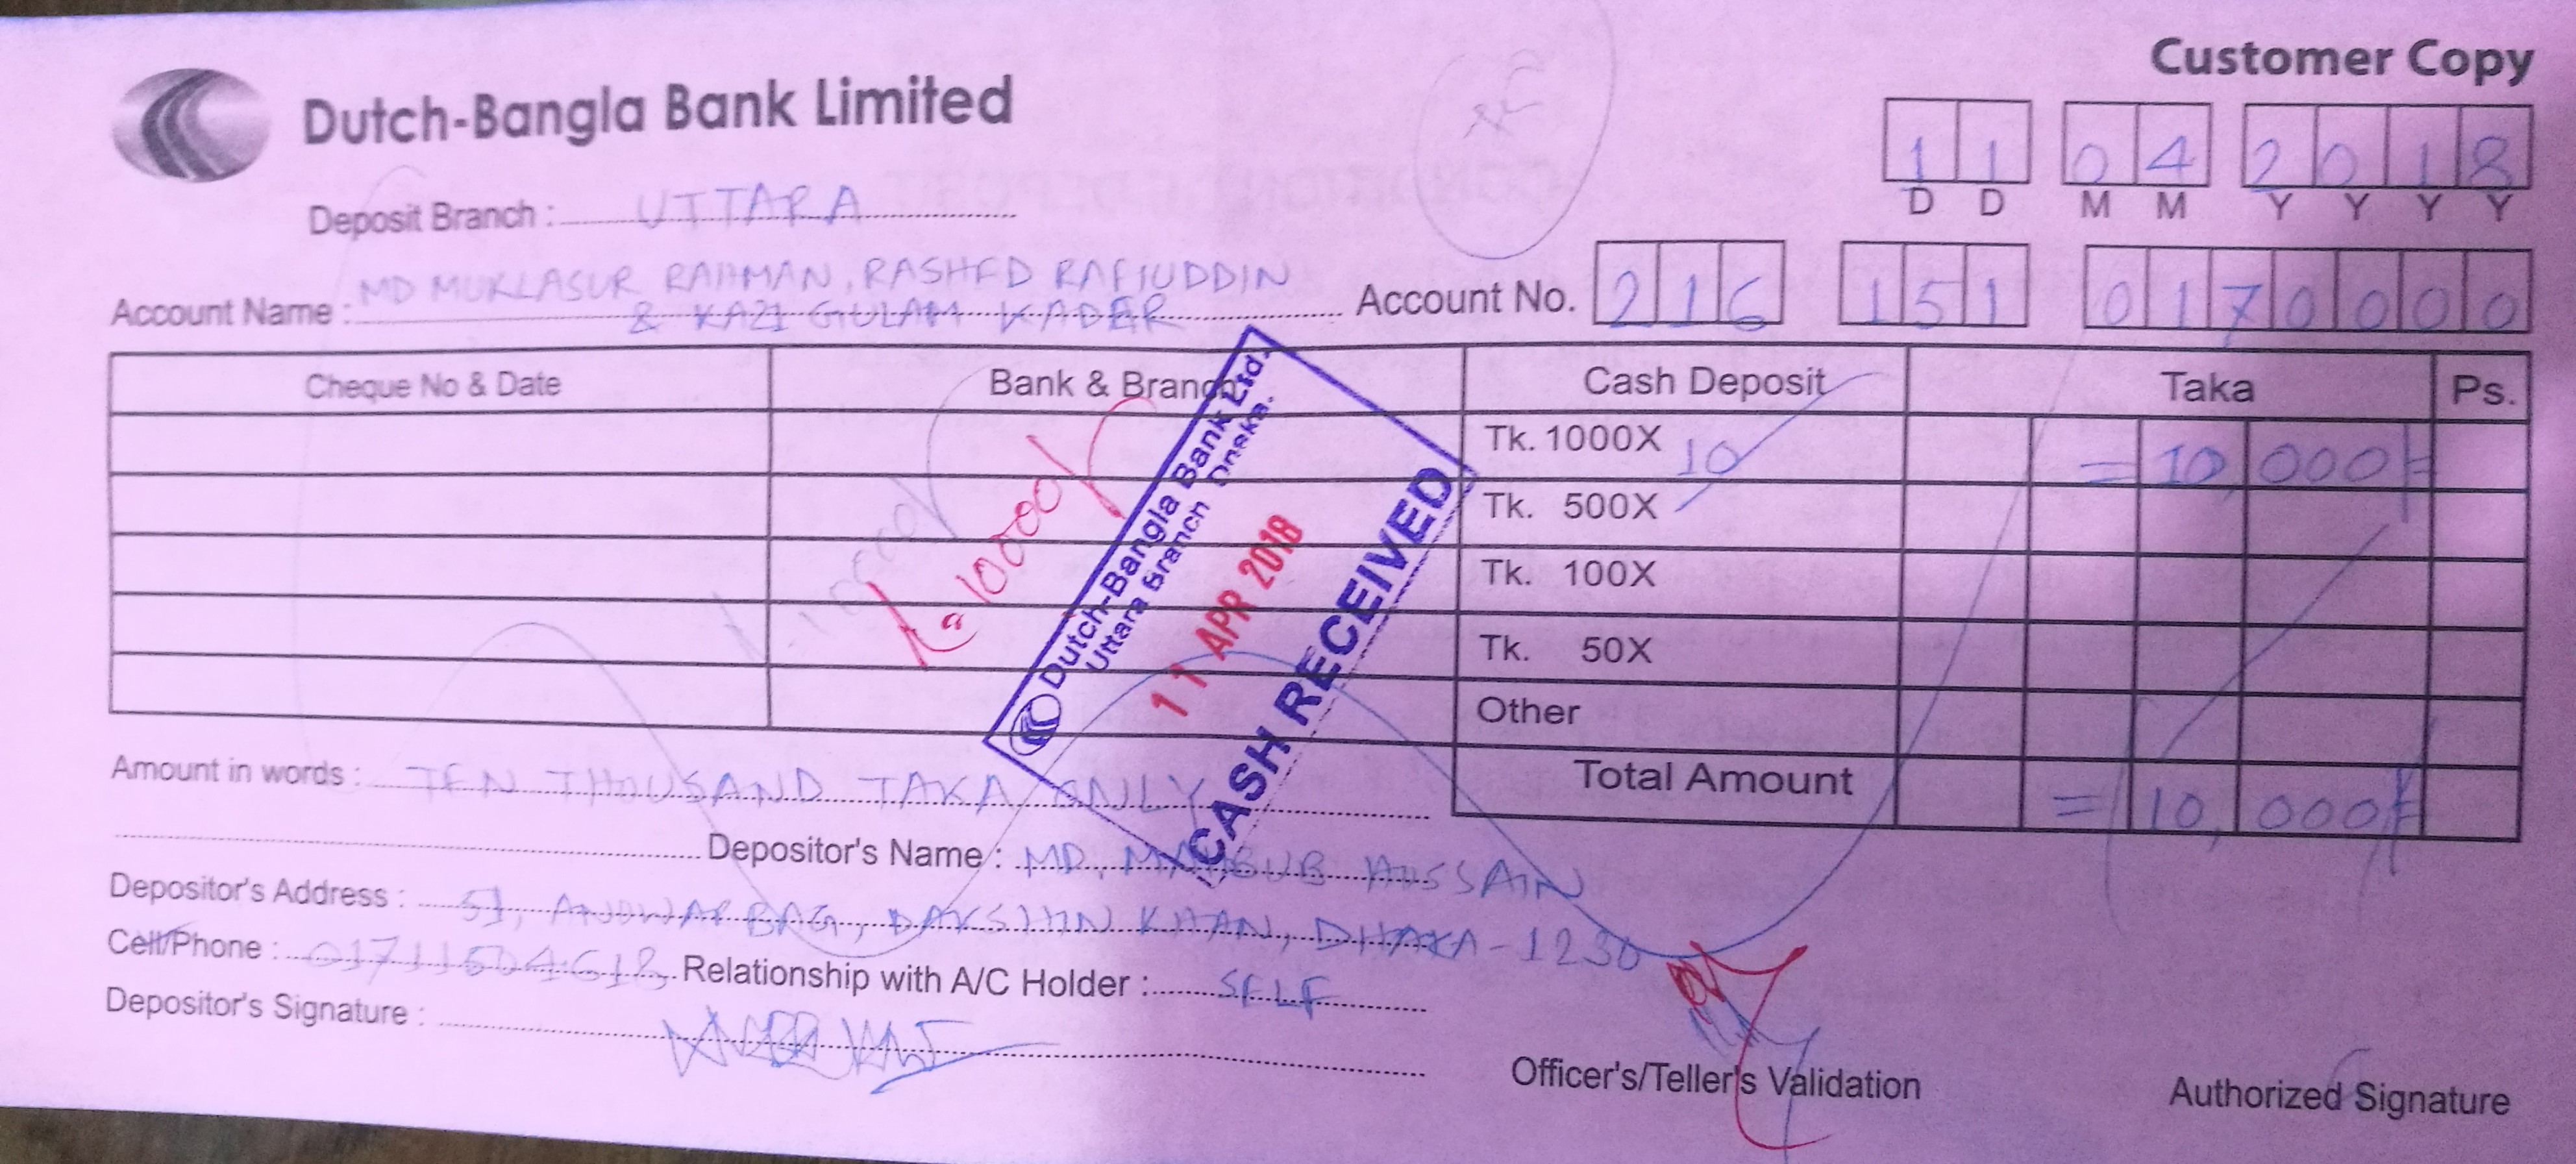 Customer Copy
Dutch-Bangla Bank Limited
11 04 2018
D D M M Y Y Y Y
Deposit Branch : UTTARA
MD MUKLASUR RAHMAN, RASHED RAFIUDDIN
Account Name : & KAZI GULAM KADER
Account No. 216 151 0170000
Cheque No & Date Bank & Branch Cash Deposit Taka Ps.
Tk. 1000X 10 = 10,000/=
Tk. 500X
Tk. 100X
Tk. 50X
Other
Total Amount = 10,000/=
10000/
Dutch-Bangla Bank Ltd.
Uttara Branch Dhaka.
11 APR 2018
CASH RECEIVED
Amount in words : TEN THOUSAND TAKA ONLY
Depositor's Name : MD. MAHBUB HOSSAIN
Depositor's Address : 51, ANOWAR BAG, DAKSHIN KHAN, DHAKA-1230
Cell/Phone : 01711504618 Relationship with A/C Holder : SELF
Depositor's Signature :
Officer's/Teller's Validation Authorized Signature